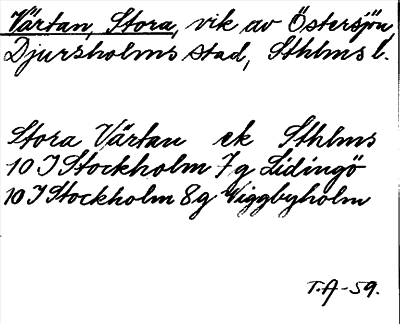 Värtan, Stora, vik av Östersjön,
Djursholms stad, Sthlms l.
Stora Värtan ek Sthlms
10 I Stockholm 7g Lidingö
10 I Stockholm 8g Viggbyholm
T.A-59.